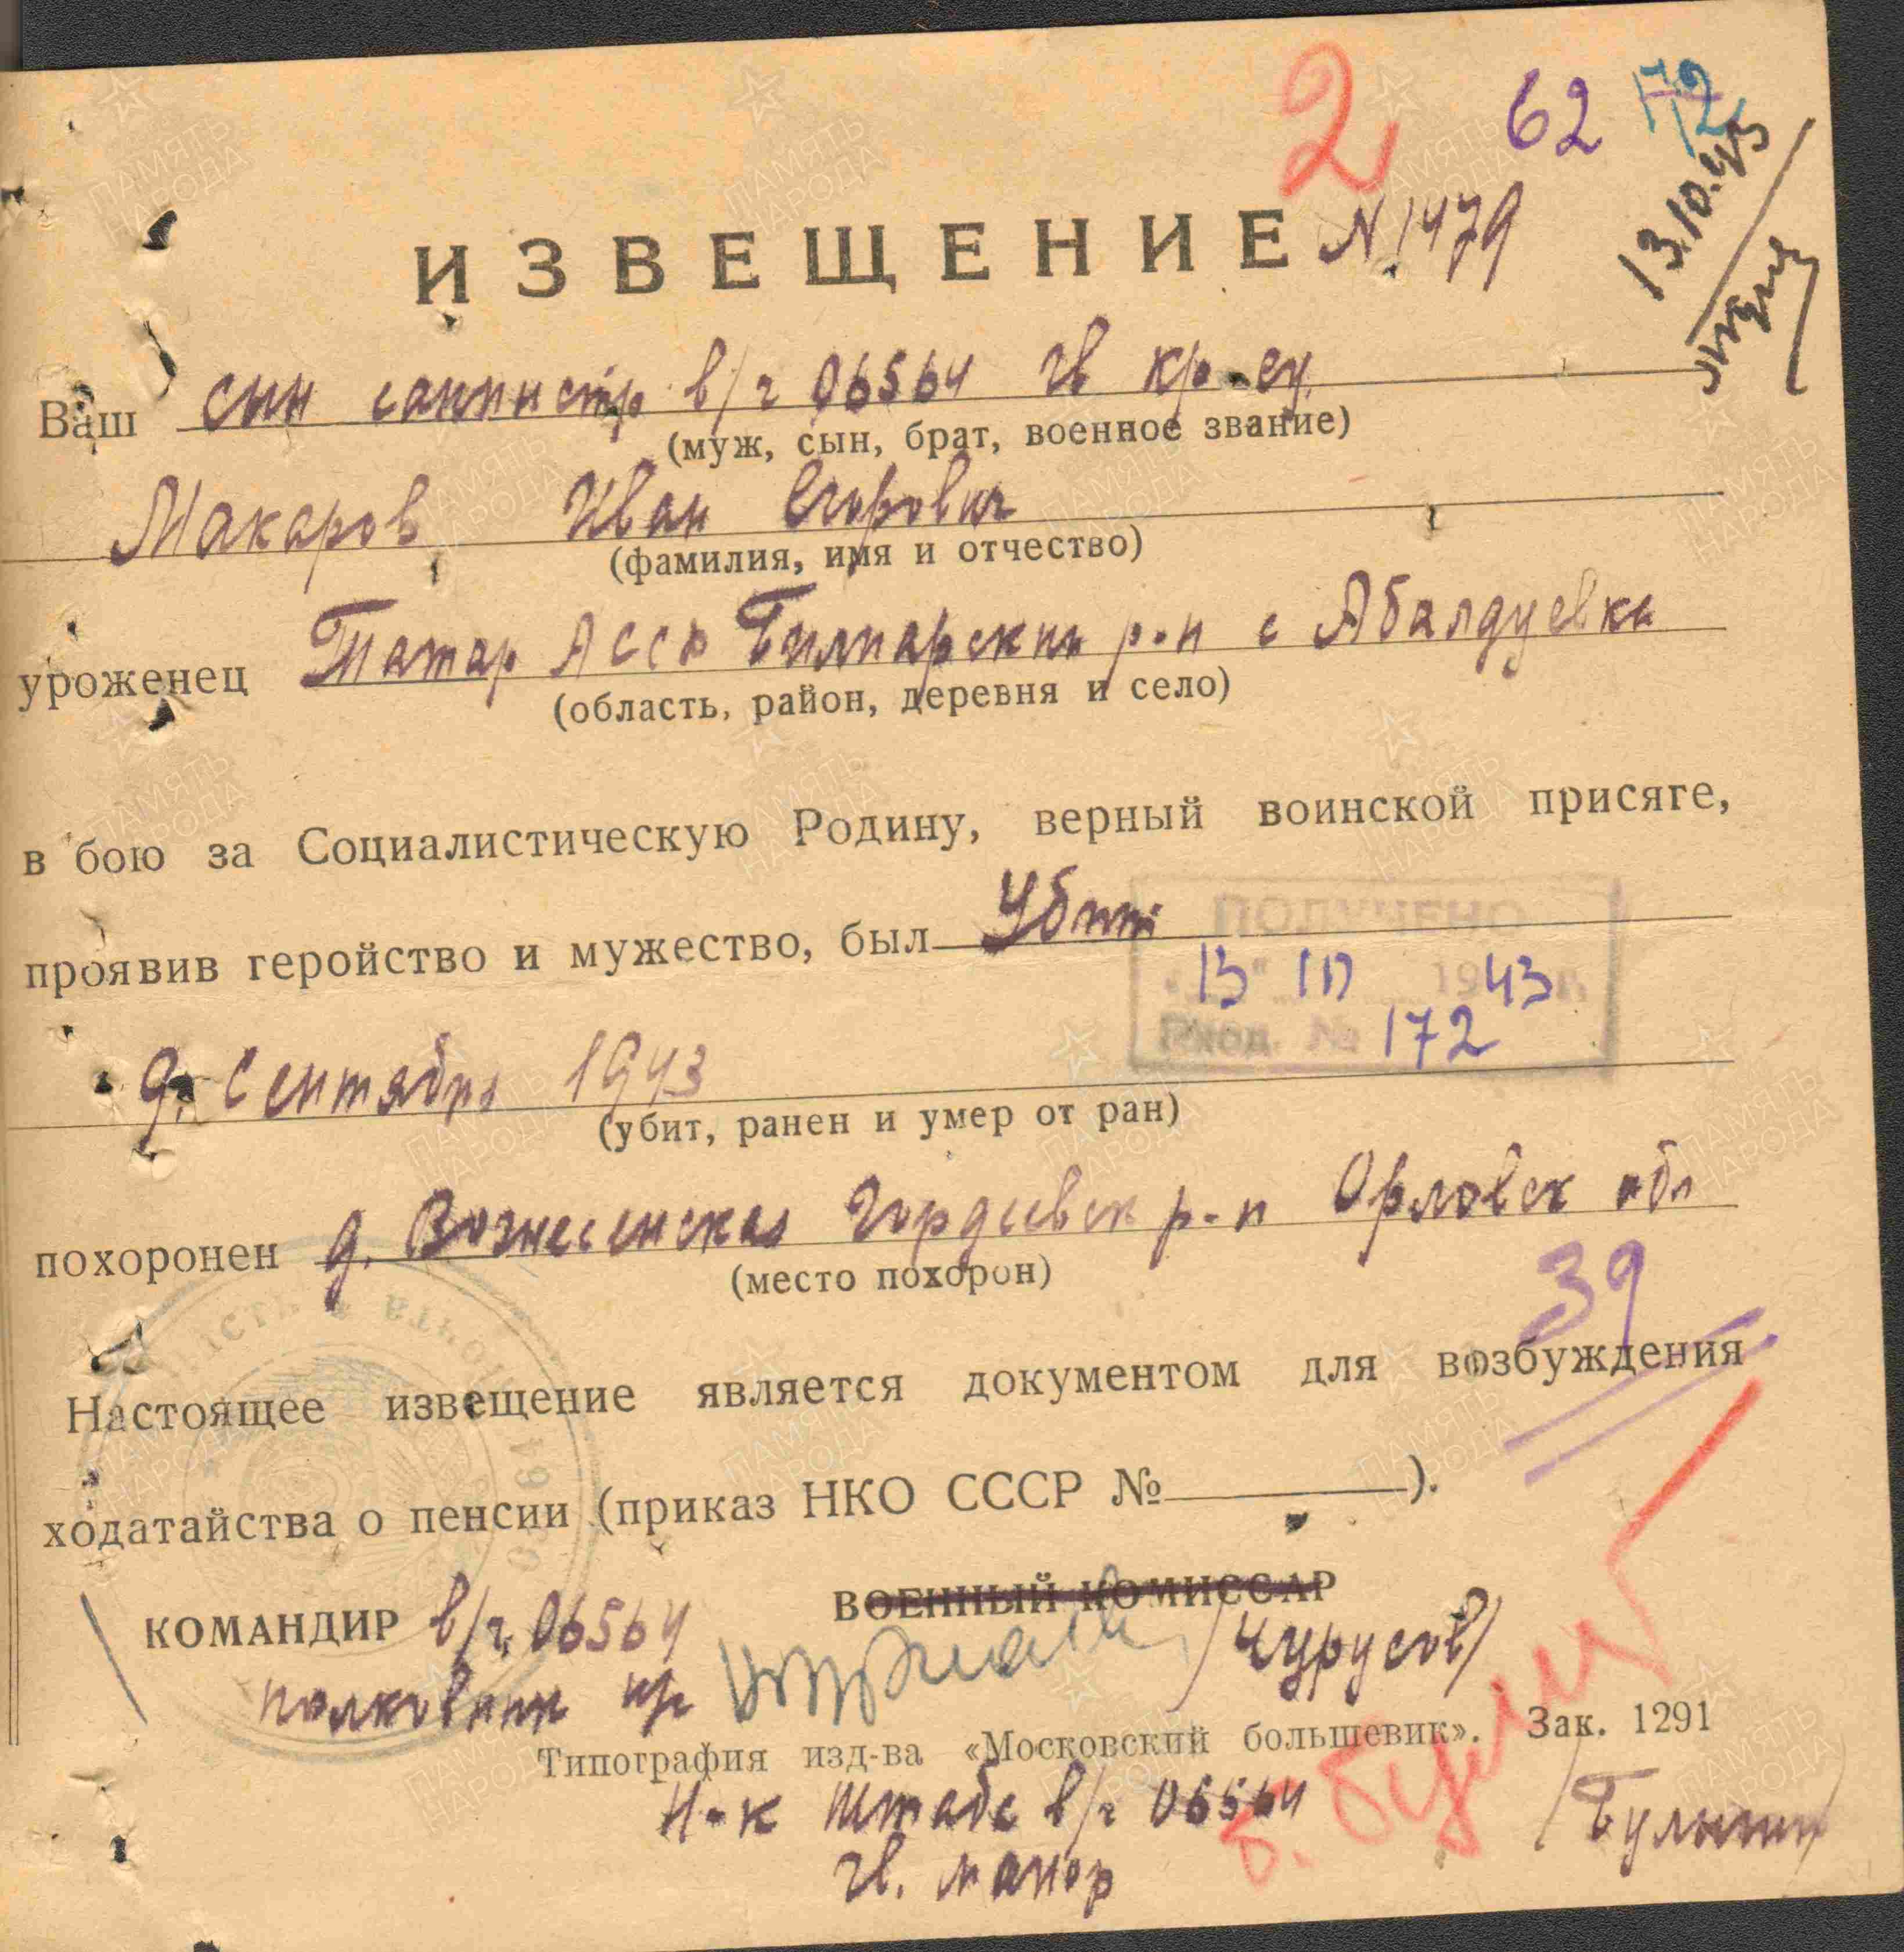 2 62 172
13.10.43
ИЗВЕЩЕНИЕ N 1479
Ваш сын в/ч 06564 гв кр-ец
(муж, сын, брат, военное звание)
Макаров Иван Егорович
(фамилия, имя и отчество)
уроженец Татар АССР Билярский р-н с Абалдуевка
(область, район, деревня и село)
в бою за Социалистическую Родину, верный воинской присяге,
проявив геройство и мужество, был Убит
ПОЛУЧЕНО
1943 г.
Вход. № 172
9. Сентября 1943
(убит, ранен и умер от ран)
похоронен д. Вознесенская Гордеевск р-н Орловск обл
(место похорон)
39
Настоящее извещение является документом для возбуждения
ходатайства о пенсии (приказ НКО СССР № ).
КОМАНДИР в/ч 06564 ВОЕННЫЙ КОМИССАР
полковник /Чурусов/
Типография изд-ва «Московский большевик». Зак. 1291
Н-к штаба в/ч 06564 /Булыгин/
гв. майор
ПАМЯТЬ НАРОДА